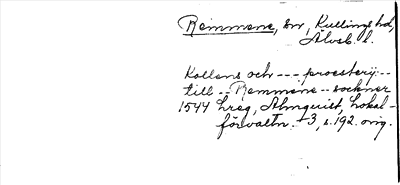 Remmene, sn, Kullings hd,
Älvsb. l.
Kollens och --- prosterij --
till -- Remmene -- sockner
1544 Lreg, Almquist, Lokal-
förvaltn. + 3, s. 192. orig.